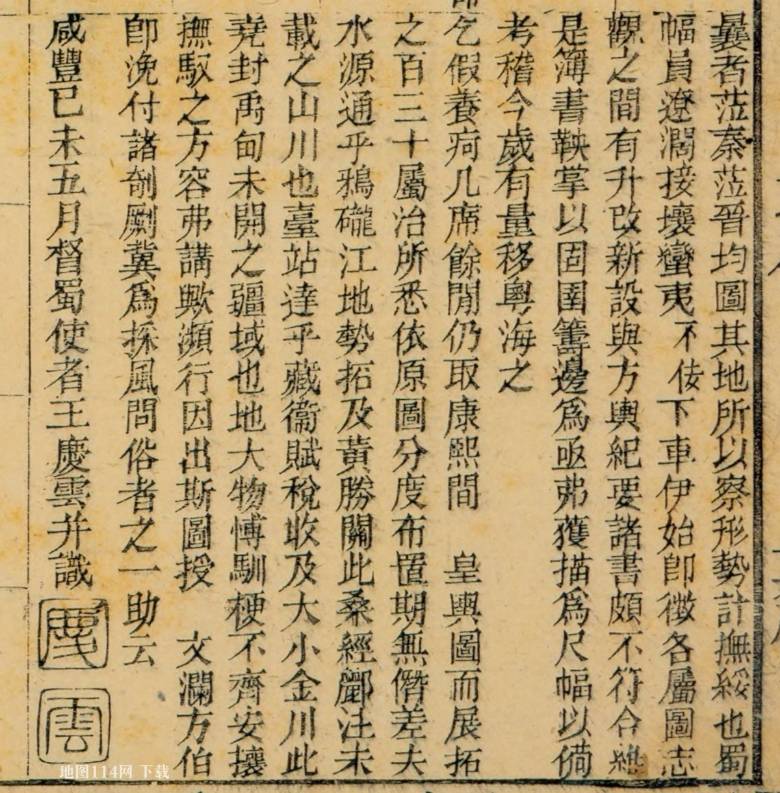 曩者蒞秦蒞晉均圖其地所以察形勢計撫綏也蜀
幅員遼濶接壤蠻夷不佞下車伊始即徵各屬圖志
觀之間有升改新設與方輿紀要諸書頗不符合維
是簿書鞅掌以固圉籌邊爲亟弗獲描爲尺幅以僃
考稽今歲有量移粵海之
乞假養疴几席餘閒仍取康熙間 皇輿圖而展拓
之百三十屬治所悉依原圖分度布置期無僭差夫
水源通乎鴉礲江地勢拓及黃勝關此桑經酈注未
載之山川也臺站達乎藏衞賦稅收及大小金川此
堯封禹甸未開之疆域也地大物博馴梗不齊安攘
撫馭之方容弗講歟瀕行因出斯圖授 文瀾方伯
即浼付諸剞劂冀爲採風問俗者之一助云
咸豐已未五月督蜀使者王慶雲并識
慶
雲
地图114网 下载